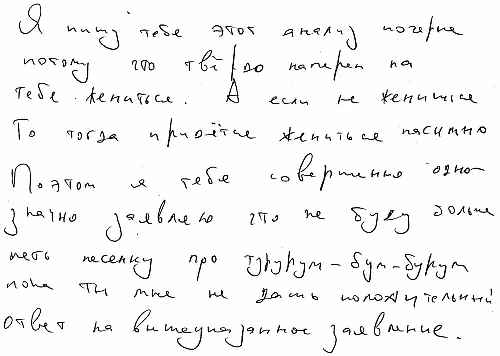 Я пишу тебе этот анализ почерка
потому что твёрдо намерен на
тебе жениться. А если не женишься
То тогда придётся жениться насильно
Поэтом я тебе совершенно одно-
значно заявляю что не буду больше
петь песенку про турурум-бум-бурум
пока ты мне не дашь положительный
ответ на вышеуказанное заявление.